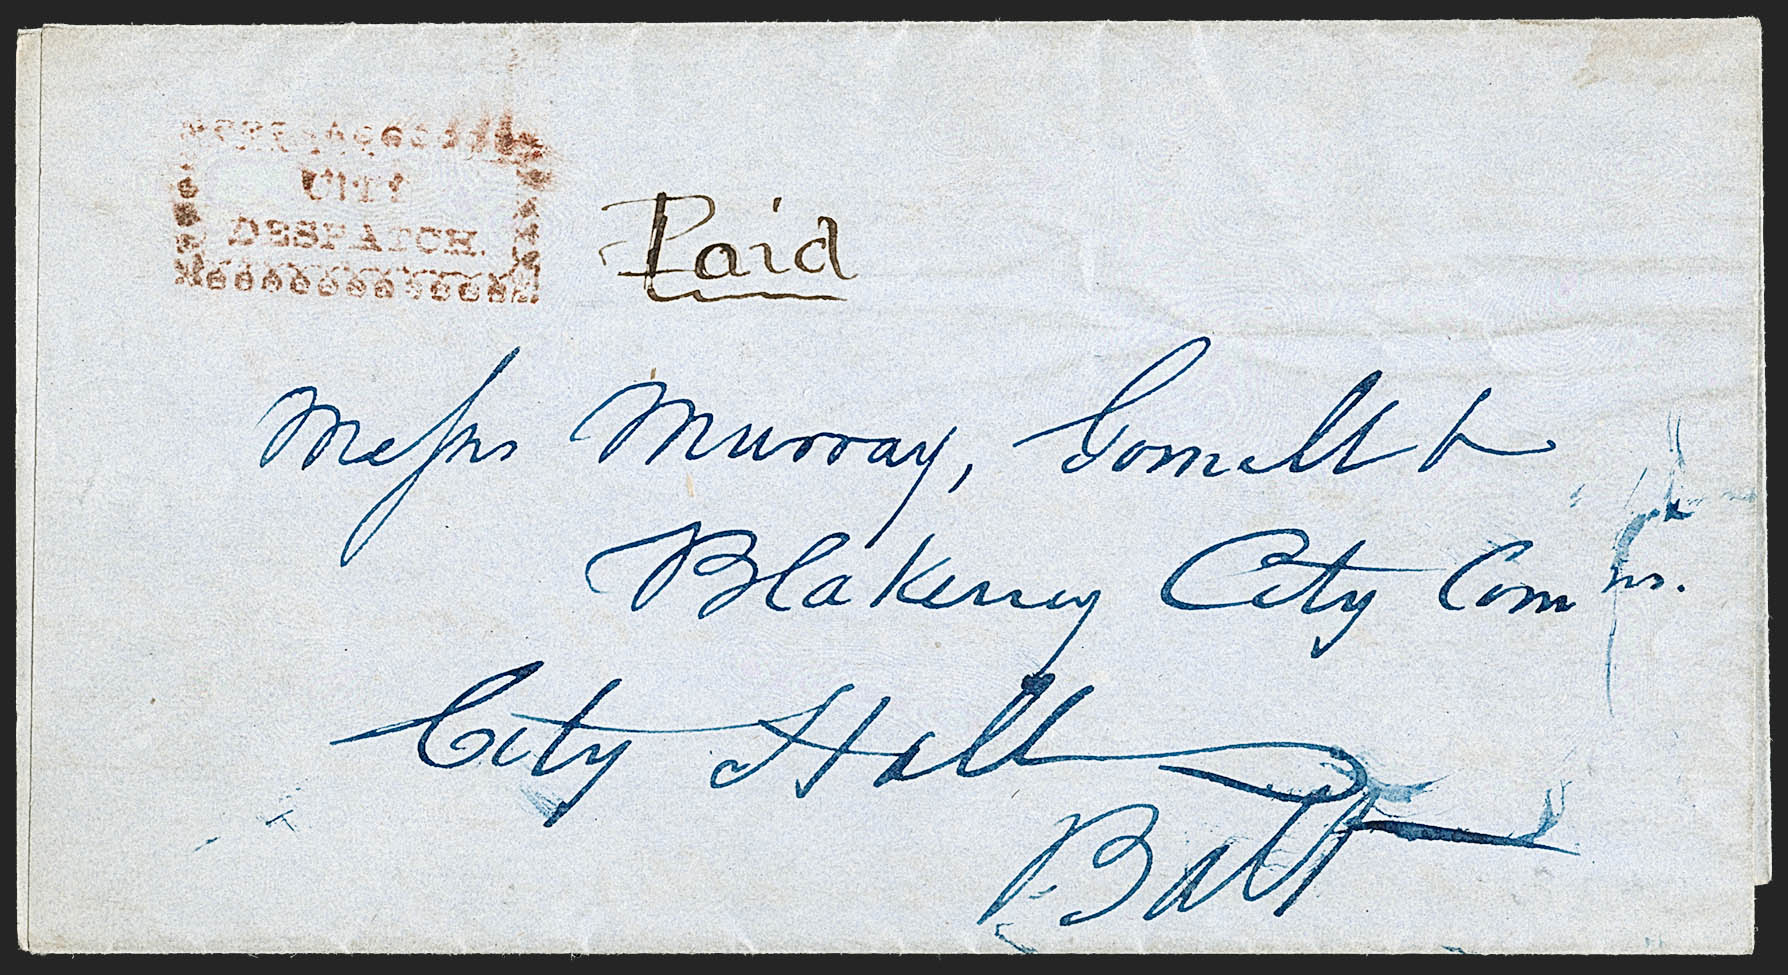 CITY
DESPATCH.
Paid
Messrs Murray, Gornell &
Blakeney City Comrs.
City Hall
Balt